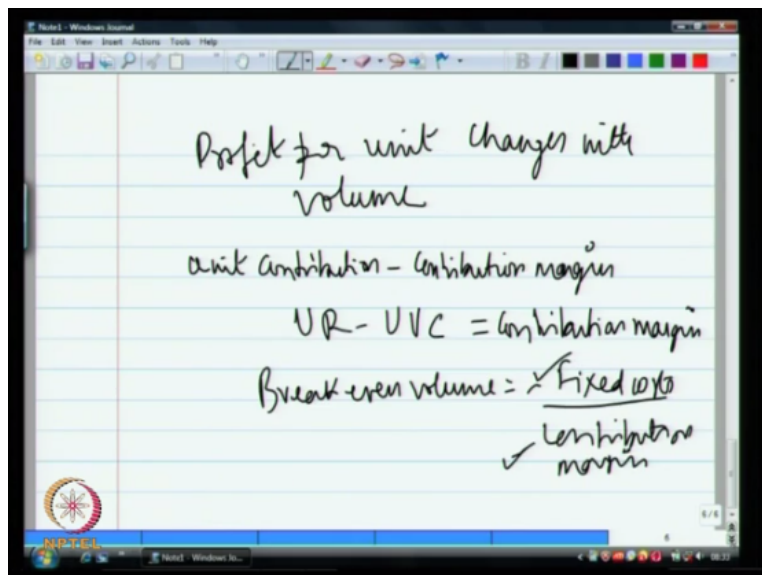 Note1 - Windows Journal
File Edit View Insert Actions Tools Help
B I
Profit for unit changes with
volume
unit contribution - contribution margin
UR - UVC = contribution margin
Break even volume = Fixed costs
contribution
margin
6/6
NPTEL
6
Note1 - Windows Jo...
08:33